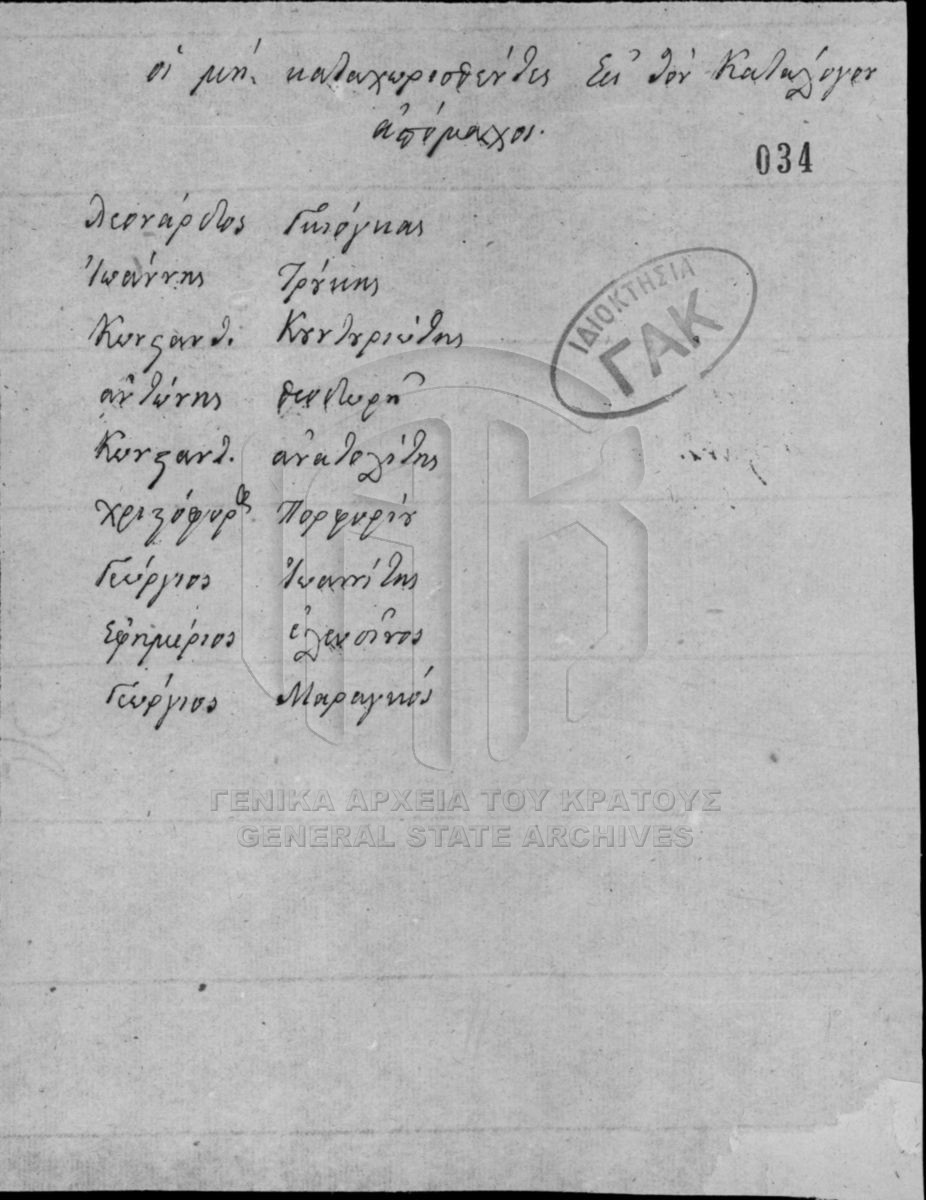 οἱ μὴ καταχωρισθέντες εἰς τὸν Κατάλογον
ἀπόμαχοι.
034
Λεονάρδος Γκιόγκας
Ἰωάννης Τρύκης
Κωνσταντ. Κουντουριώτης
ἀντώνης θεοδωρῆ
Κωνσταντ. ἀνατολίτης
Χριστόφορος Πορφυρίου
Γεώργιος Ἰωαννίτης
Εφημέριος ἐλευσῖνος
Γεώργιος Μαραγκός
ΙΔΙΟΚΤΗΣΙΑ
ΓΑΚ
ΓΕΝΙΚΑ ΑΡΧΕΙΑ ΤΟΥ ΚΡΑΤΟΥΣ
GENERAL STATE ARCHIVES